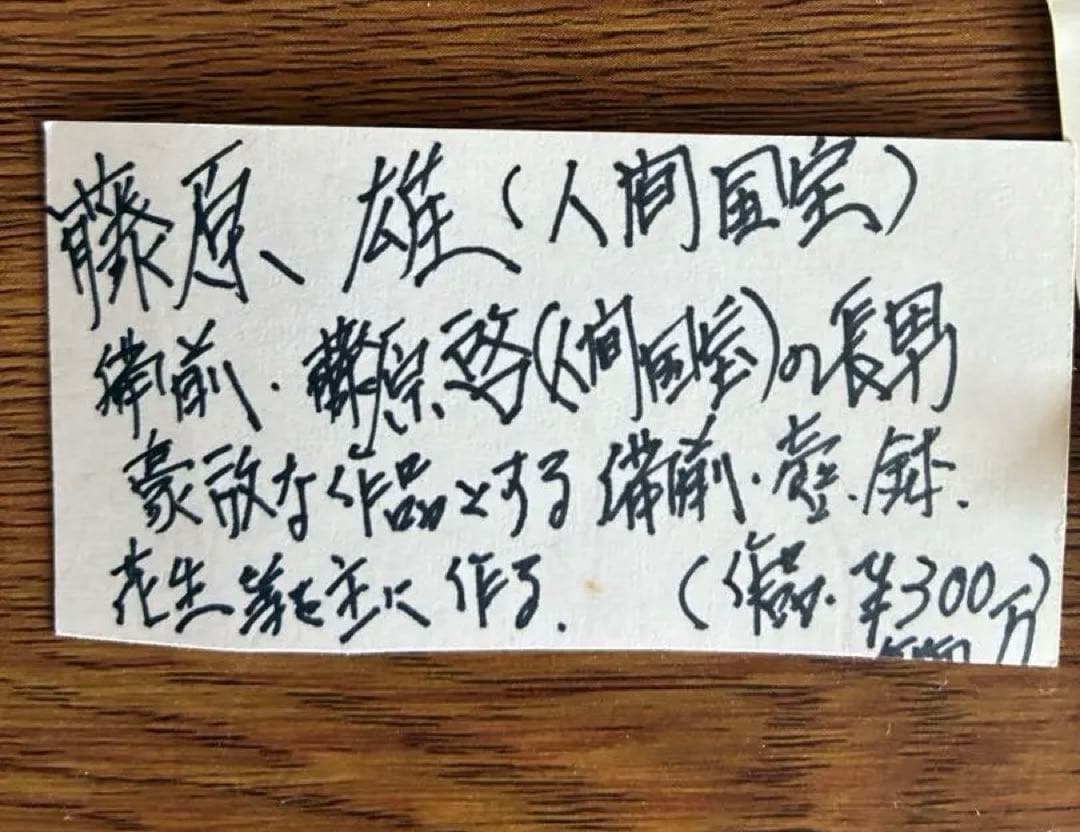 藤原、雄(人間国宝)
備前・藤原、啓(人間国宝)の長男
豪放な作品とする備前・壺、鉢、
花生等を主に作る. (作品・¥300万)